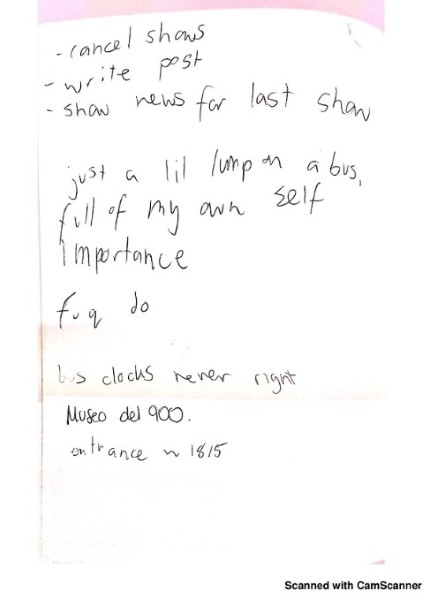 - cancel shows
- write post
- show news for last show
just a lil lump on a bus,
full of my own self
importance
f.u.q do
bus clocks never right
Museo del 900.
entrance ~ 1815
Scanned with CamScanner